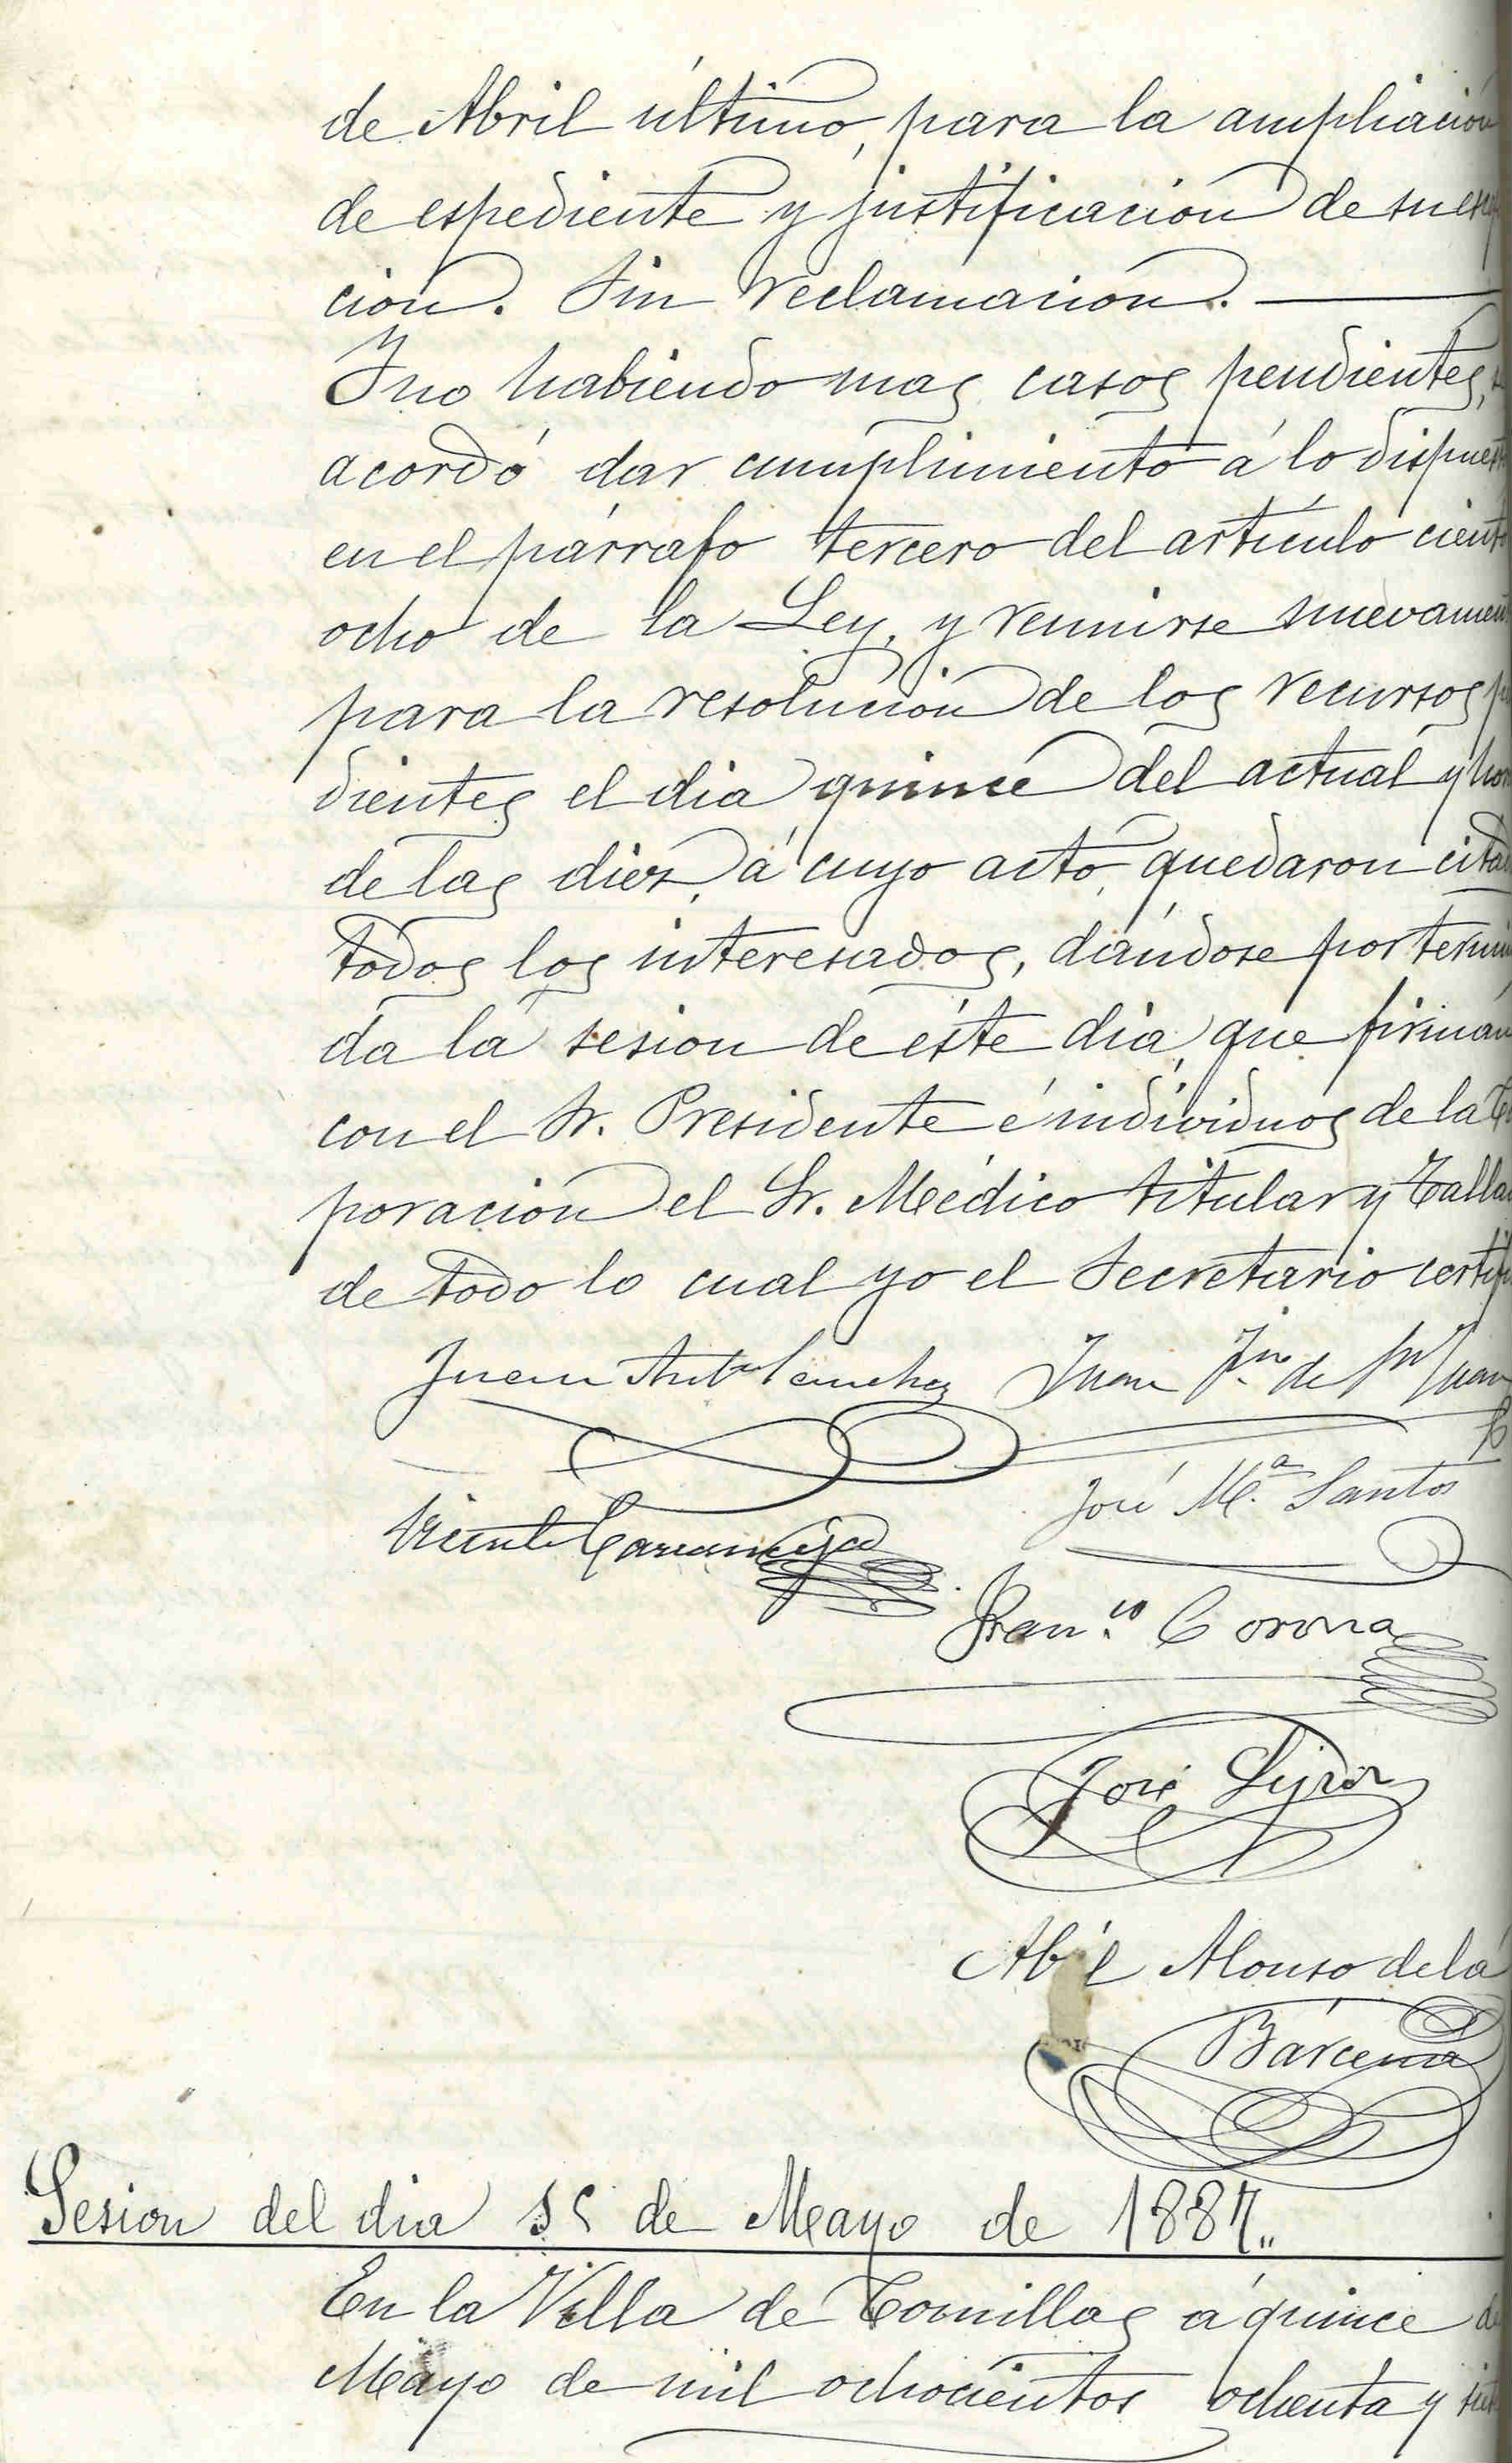 de Abril último, para la ampliación
de espediente y justificacion de su
cion. Sin reclamacion.
Y no habiendo mas casos pendientes,
acordó dar cumplimiento á lo dispuest
en el párrafo tercero del artículo ciento
ocho de la Ley, y reunirse nuevament
para la resolución de los recursos
dientes el dia quince del actual y hor
de las diez, á cuyo acto, quedaron citad
todos los interesados, dándose por termin
da la sesion de éste dia, que firman
con el Sr. Presidente é individuos de la
poracion el Sr. Medico titular y Talla
de todo lo cual yo el Secretario certif
Juan Antº Sanchez Juan Fno de Sn Juan
José M.ª Santos
Vicente
Fran.co Corona
José
Abél Alonso de la
Bárcena
Sesion del dia 15 de Mayo de 1887„
En la Villa de Comillas á quince de
Mayo de mil ochocientos ochenta y siet